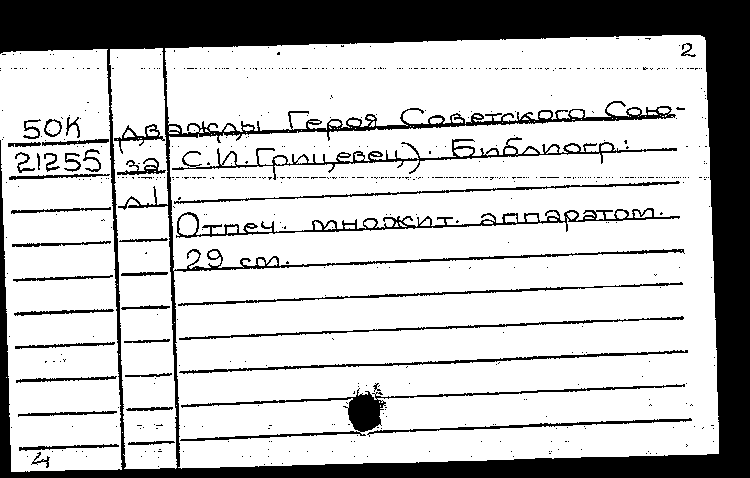 2
50К дважды Героя Советского Сою-
21255 за С.И.Грицевец). Библиогр.:
л.1.
Отпеч. множит. аппаратом.
29 см.
4